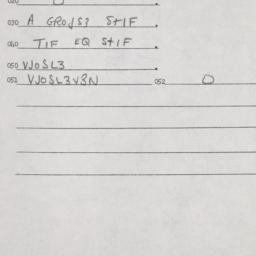 020
030 A GROJS3 StIF
040 TIF EQ StIF
050 VJOSL3
051 VJOSL3V3N 052 O